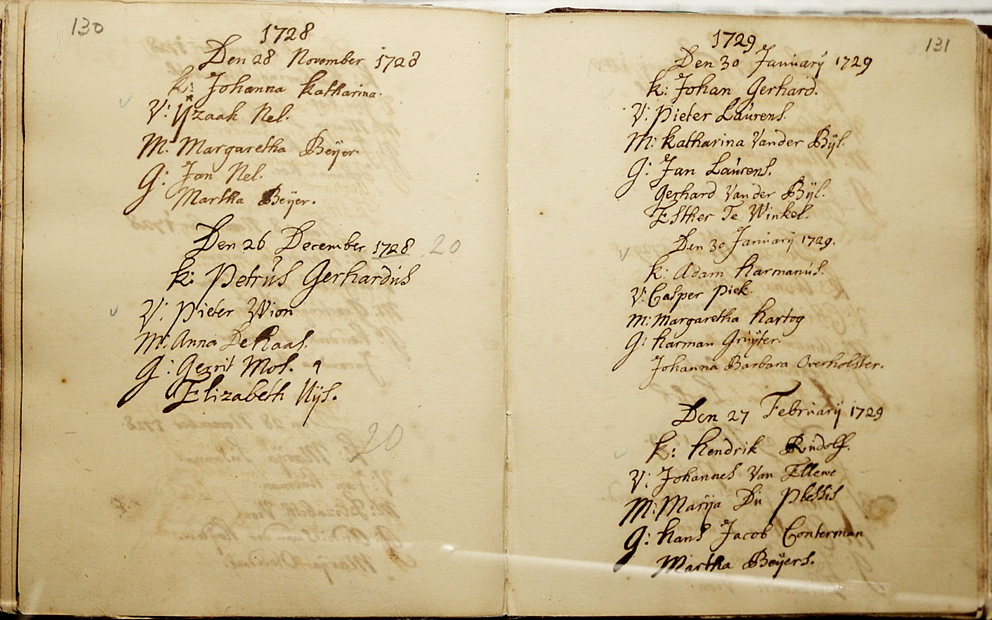 130
1728
Den 28 November 1728
k: Johanna Katharina.
V: Yzaak Nel.
M: Margaretha Beÿer
G: Jan Nel.
Martha Beÿer.
Den 26 December 1728 20
k: Petrus Gerhardus
V: Pieter Wion
M: Anna De Haas.
G: Gerrit Mos.
Elizabeth Nÿs.
20
131
1729
Den 30 Januarÿ 1729
k: Johan Gerhard.
V: Pieter Laurens.
M: Katharina Vander Bÿl.
G: Jan Laurens.
Gerhard Van der Bÿl.
Esther Te Winkel.
Den 30 Januarÿ 1729.
k: Adam Harmanus.
V: Casper Piek
M: Margaretha Hartog
G: Harman Gruÿter.
Johanna Barbara Overholster.
Den 27 Februarÿ 1729
k: Hendrik Rudolf.
V: Johannes Van Ellewe
M: Marÿa Du Plessis
G: Hans Jacob Conterman
Martha Beÿers.